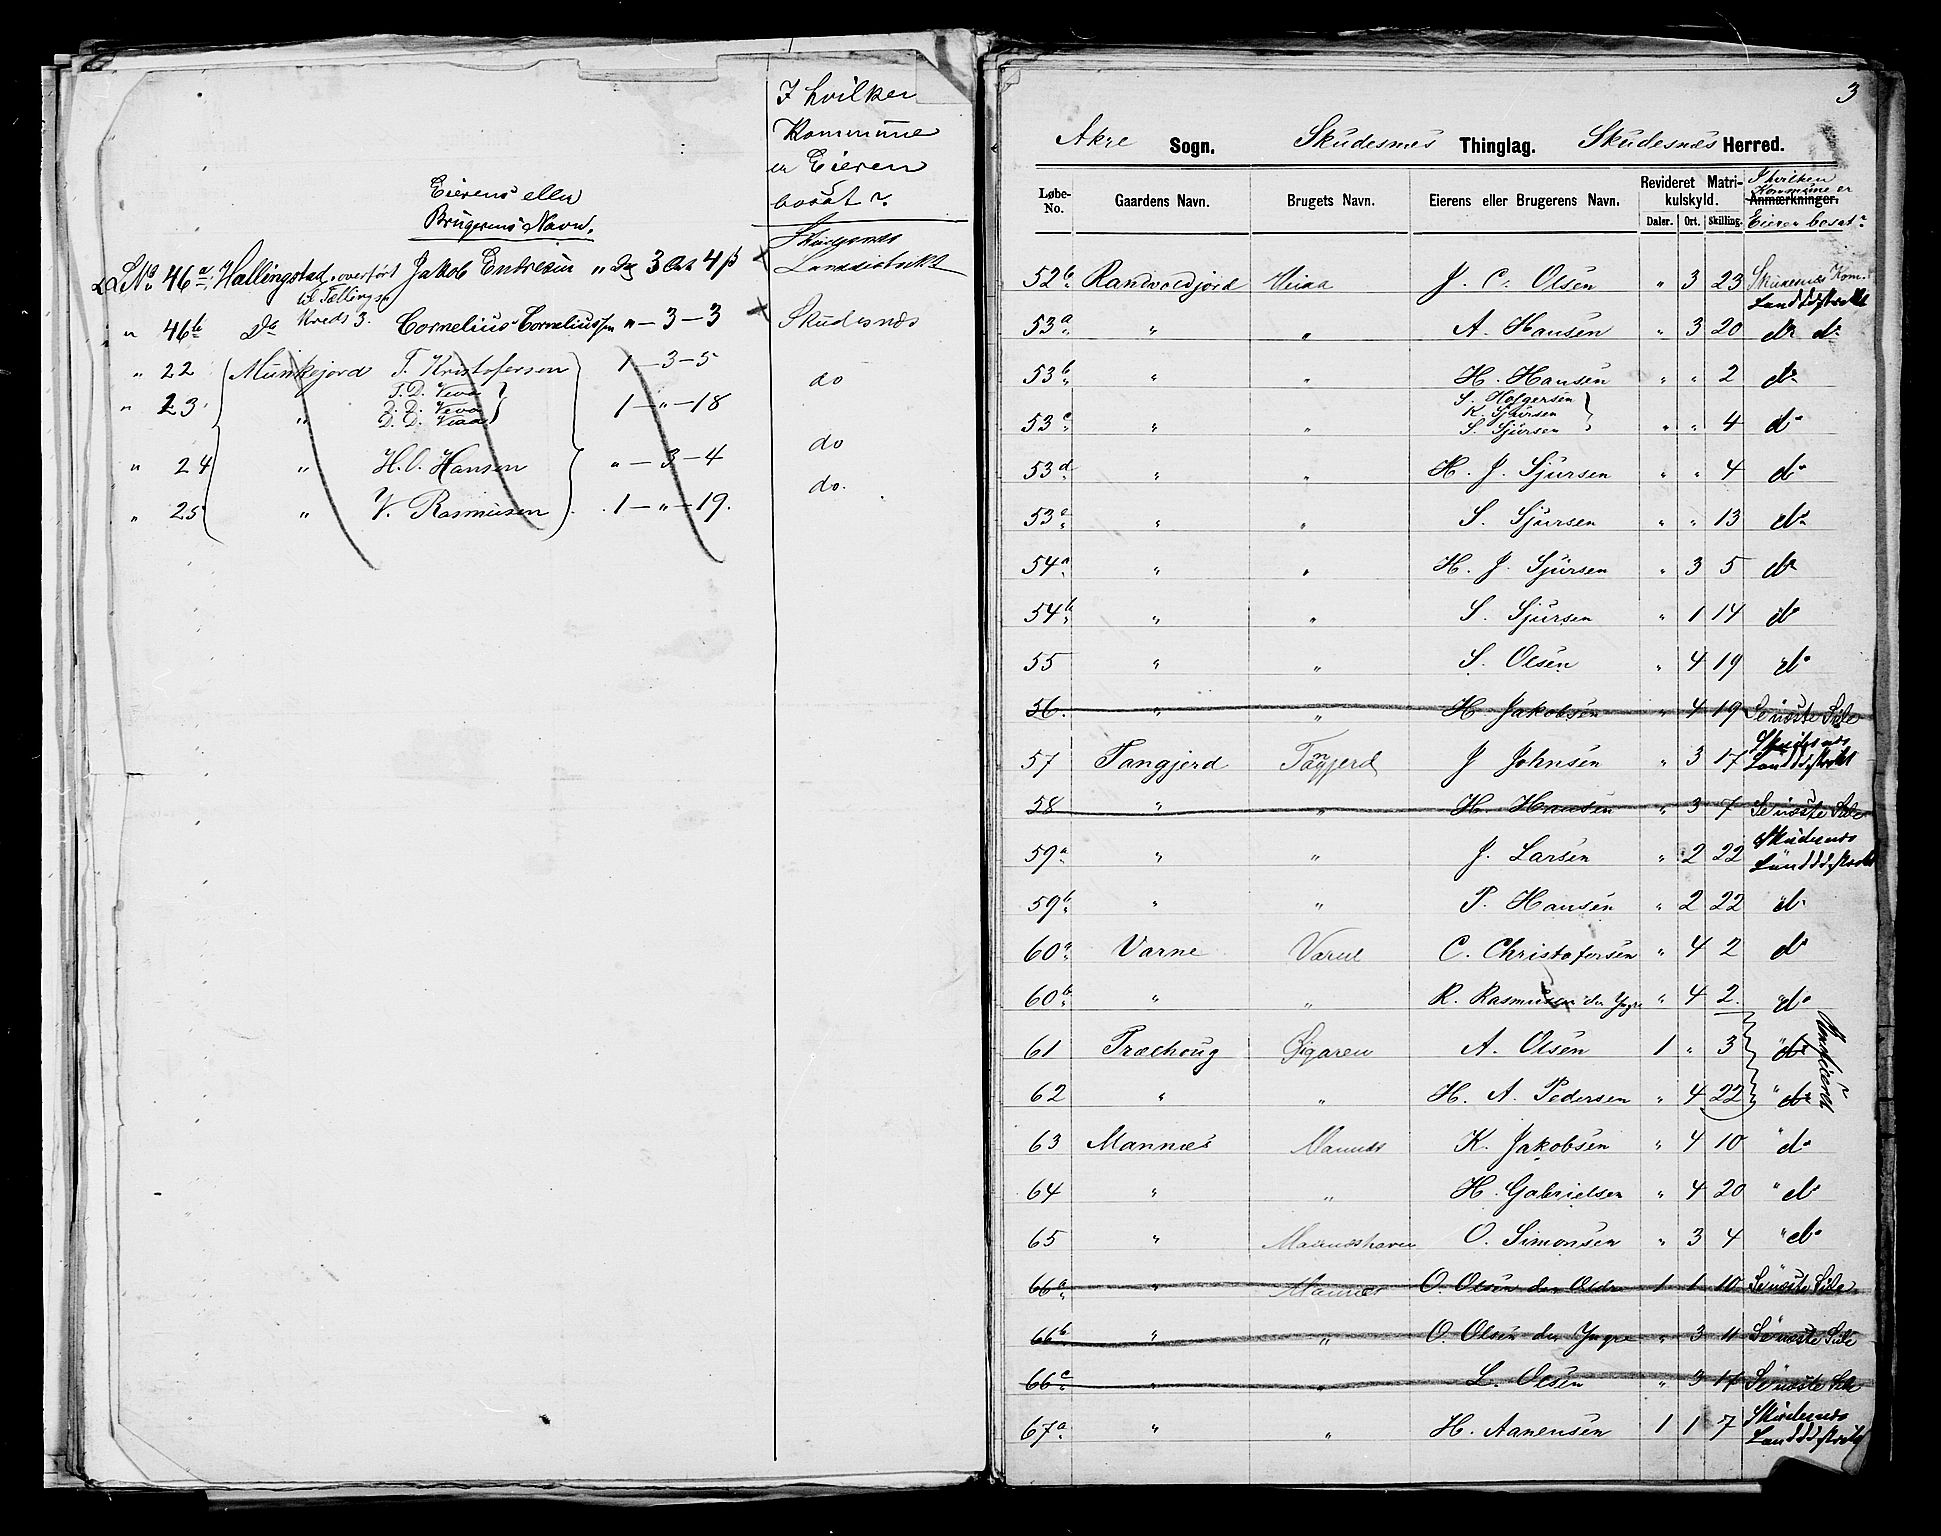 I hvilken
Kommune
er Eieren
bosat?
Eierens eller
Brugerens Navn.
L No 46a Hallingstad, overført Jakob Endresen " Dlr 3 Ort 4 ß Skudesnæs Landdistrikt
til Tællings
Kreds 3.
" 46b Do Cornelius Corneliussen " - 3 - 3 Skudesnæs
" 22 Munkejord T. Kristofersen 1 - 3 - 5 do
" 23 " T. D. Vevo 1 - " - 18
D. D. Vevo
D. D. Viaa
" 24 " H. O. Hansen " - 3 - 4 do
" 25 " V. Rasmusen 1 - " - 19. do.
3
Akre Sogn. Skudesnæs Thinglag. Skudesnæs Herred.
Løbe-No. Gaardens Navn. Brugets Navn. Eierens eller Brugerens Navn. Revideret Matrikulskyld. Daler. Ort. Skilling. Anmærkninger.
I hvilken
Kommune er
Eieren bosat?
52b Randvoldjord J. C. Olsen " 3 23 Skudesnæs Kom. Landdistrikt
53a " " A. Hansen " 3 20 do do
53b " " H. Hansen " " 2 do
53c " " S. Holgersen " " 4 do
K. Sjursen
S. Sjursen
53d " " H. J. Sjursen " " 4 do
53e " " S. Sjursen " " 13 do
54a " " H. J. Sjursen " 3 5 do
54b " " S. Sjursen " 1 14 do
55 " " S. Olsen " 4 19 do
56. " " H. Jakobsen " 4 19 Se næste Side
57 Tangjerd Tangjerd J. Johnsen " 3 17 Skudesnæs Landdistrikt
58 " " H. Hansen " 3 7 Se næste Side
59a " " J. Larsen " 2 22 Skudesnæs Landddistrikt
59b " " P. Hansen " 2 22 do
60a Varne C. Christofersen " 4 2 do
60b " " R. Rasmusen den Yngre " 4 2. do
61 Træehoug A. Olsen 1 " 3 " do
62 " " H. A. Pedersen " 4 22 " do
63 Mannæs Mannæs K. Jakobsen " 4 10 " do
64 " " H. Gabrielsen " 4 20 " do
65 " Mannæshavn O. Simonsen " 3 4 " do
66a " Mannæs O. Olsen den Ældre 1 1 10 Se næste Side
66b " " O. Olsen den Yngre " 3 11 Se næste Side
66c " " L. Olsen " 3 17 Se næste Side
67a " " H. Aanensen 1 1 7 Skudesnæs Landddistrikt